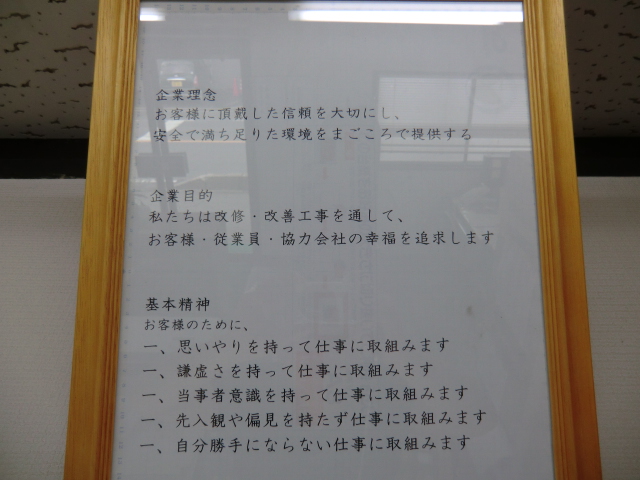 企業理念
お客様に頂戴した信頼を大切にし、
安全で満ち足りた環境をまごころで提供する
企業目的
私たちは改修・改善工事を通して、
お客様・従業員・協力会社の幸福を追求します
基本精神
お客様のために、
一、思いやりを持って仕事に取組みます
一、謙虚さを持って仕事に取組みます
一、当事者意識を持って仕事に取組みます
一、先入観や偏見を持たず仕事に取組みます
一、自分勝手にならない仕事に取組みます